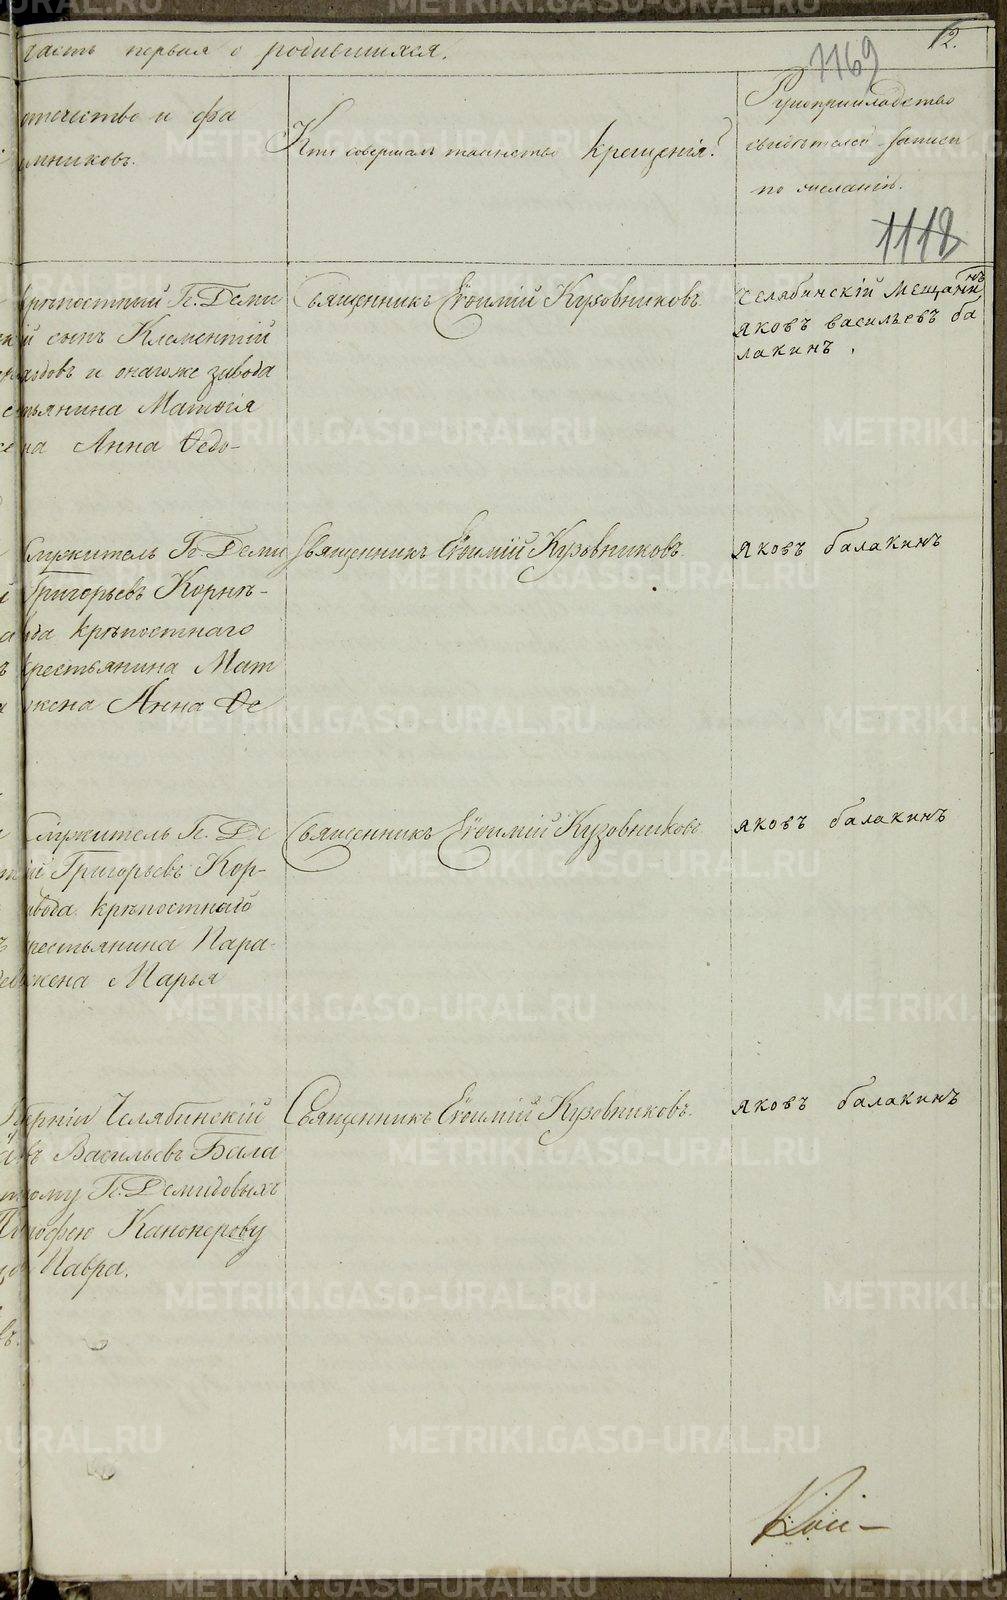 часть первая о родившихся.
12.
1169
отечество и фа
мниковъ.
Кто совершалъ таинство крещенія?
Рукоприкладство
свидѣтелей записи
по желанію.
1118
крѣпостный Гг. Деми
й сынъ Климентій
и онагоже завода
стьянина Матвѣя
на Анна Ѳедо-
Священникъ Евѳимій Кузовниковъ
челябинскій мещанинъ
яковъ васильевъ ба
лакинъ.
служитель Гг. Деми
Григорьевъ Корнѣ-
ода крѣпостнаго
крестьянина Мат
жена Анна Ѳе
Священникъ Евѳимій Кузовниковъ
яковъ балакинъ
служитель Гг. Де
ій Григорьевъ Кор-
авода крѣпостнаго
крестьянина Пара-
жена Марья
Священникъ Евѳимій Кузовниковъ
яковъ балакинъ
берніи Челябинскій
въ Васильевъ Бала
ному Гг. Демидовыхъ
рофею Канонерову
Лавра.
Священникъ Евѳимій Кузовниковъ.
яковъ балакинъ
METRIKI.GASO-URAL.RU